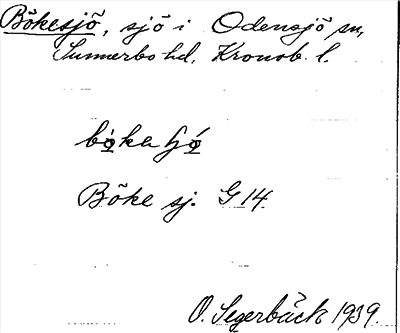 Bökesjö, sjö i Odensjö sn,
Sunnerbo hd. Kronob. l.
Böke sj. G 14
O. Segerbäck 1939.